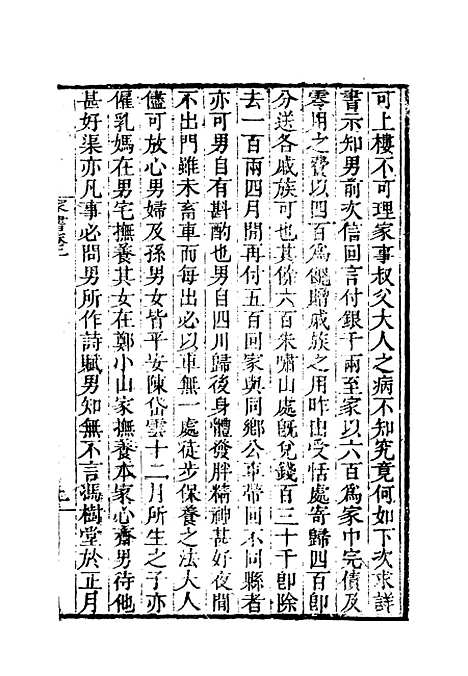 可上樓不可理家事叔父大人之病不知究竟何如下次求詳
書示知男前次信回言付銀千兩至家以六百爲家中完債及
零用之費以四百爲餽贈戚族之用昨由受恬處寄歸四百卽
分送各戚族可也其餘六百朱嘯山處旣兌錢百三十千卽除
去一百兩四月間再付五百回家與同鄉公車帶回不同縣者
亦可男自有斟酌也男自四川歸後身體發胖精神甚好夜間
不出門雖未畜車而每出必以車無一處徒步保養之法大人
儘可放心男婦及孫男女皆平安陳岱雲十二月所生之子亦
僱乳媽在男宅撫養其女在鄭小山家撫養本家心齋男待他
甚好渠亦凡事必問男所作詩賦男知無不言馮樹堂於正月
家書卷二